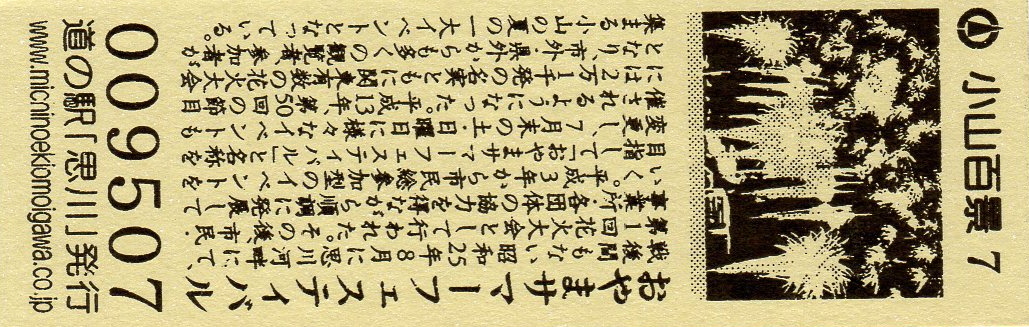 小山百景 7
おやまサマーフェスティバル
戦後間もない昭和25年8月に思川河畔にて、
第1回花火大会として行われた。その後、市民・
事業所・各団体の協力を得ながら順調に発展して
いく。平成3年から市民総参加型のイベントを
目指して「おやまサマーフェスティバル」と名称を
変更し、7月末の土・日曜日に様々なイベントも
催されるようになった。平成13年、第50回の節目
には2万1千発の名実ともに関東有数の花火大会
となり、市外・県外からも多くの観覧者、参加者が
集まる小山の夏の一大イベントとなっている。
009507
道の駅「思川」発行
www.michinoekiomoigawa.co.jp